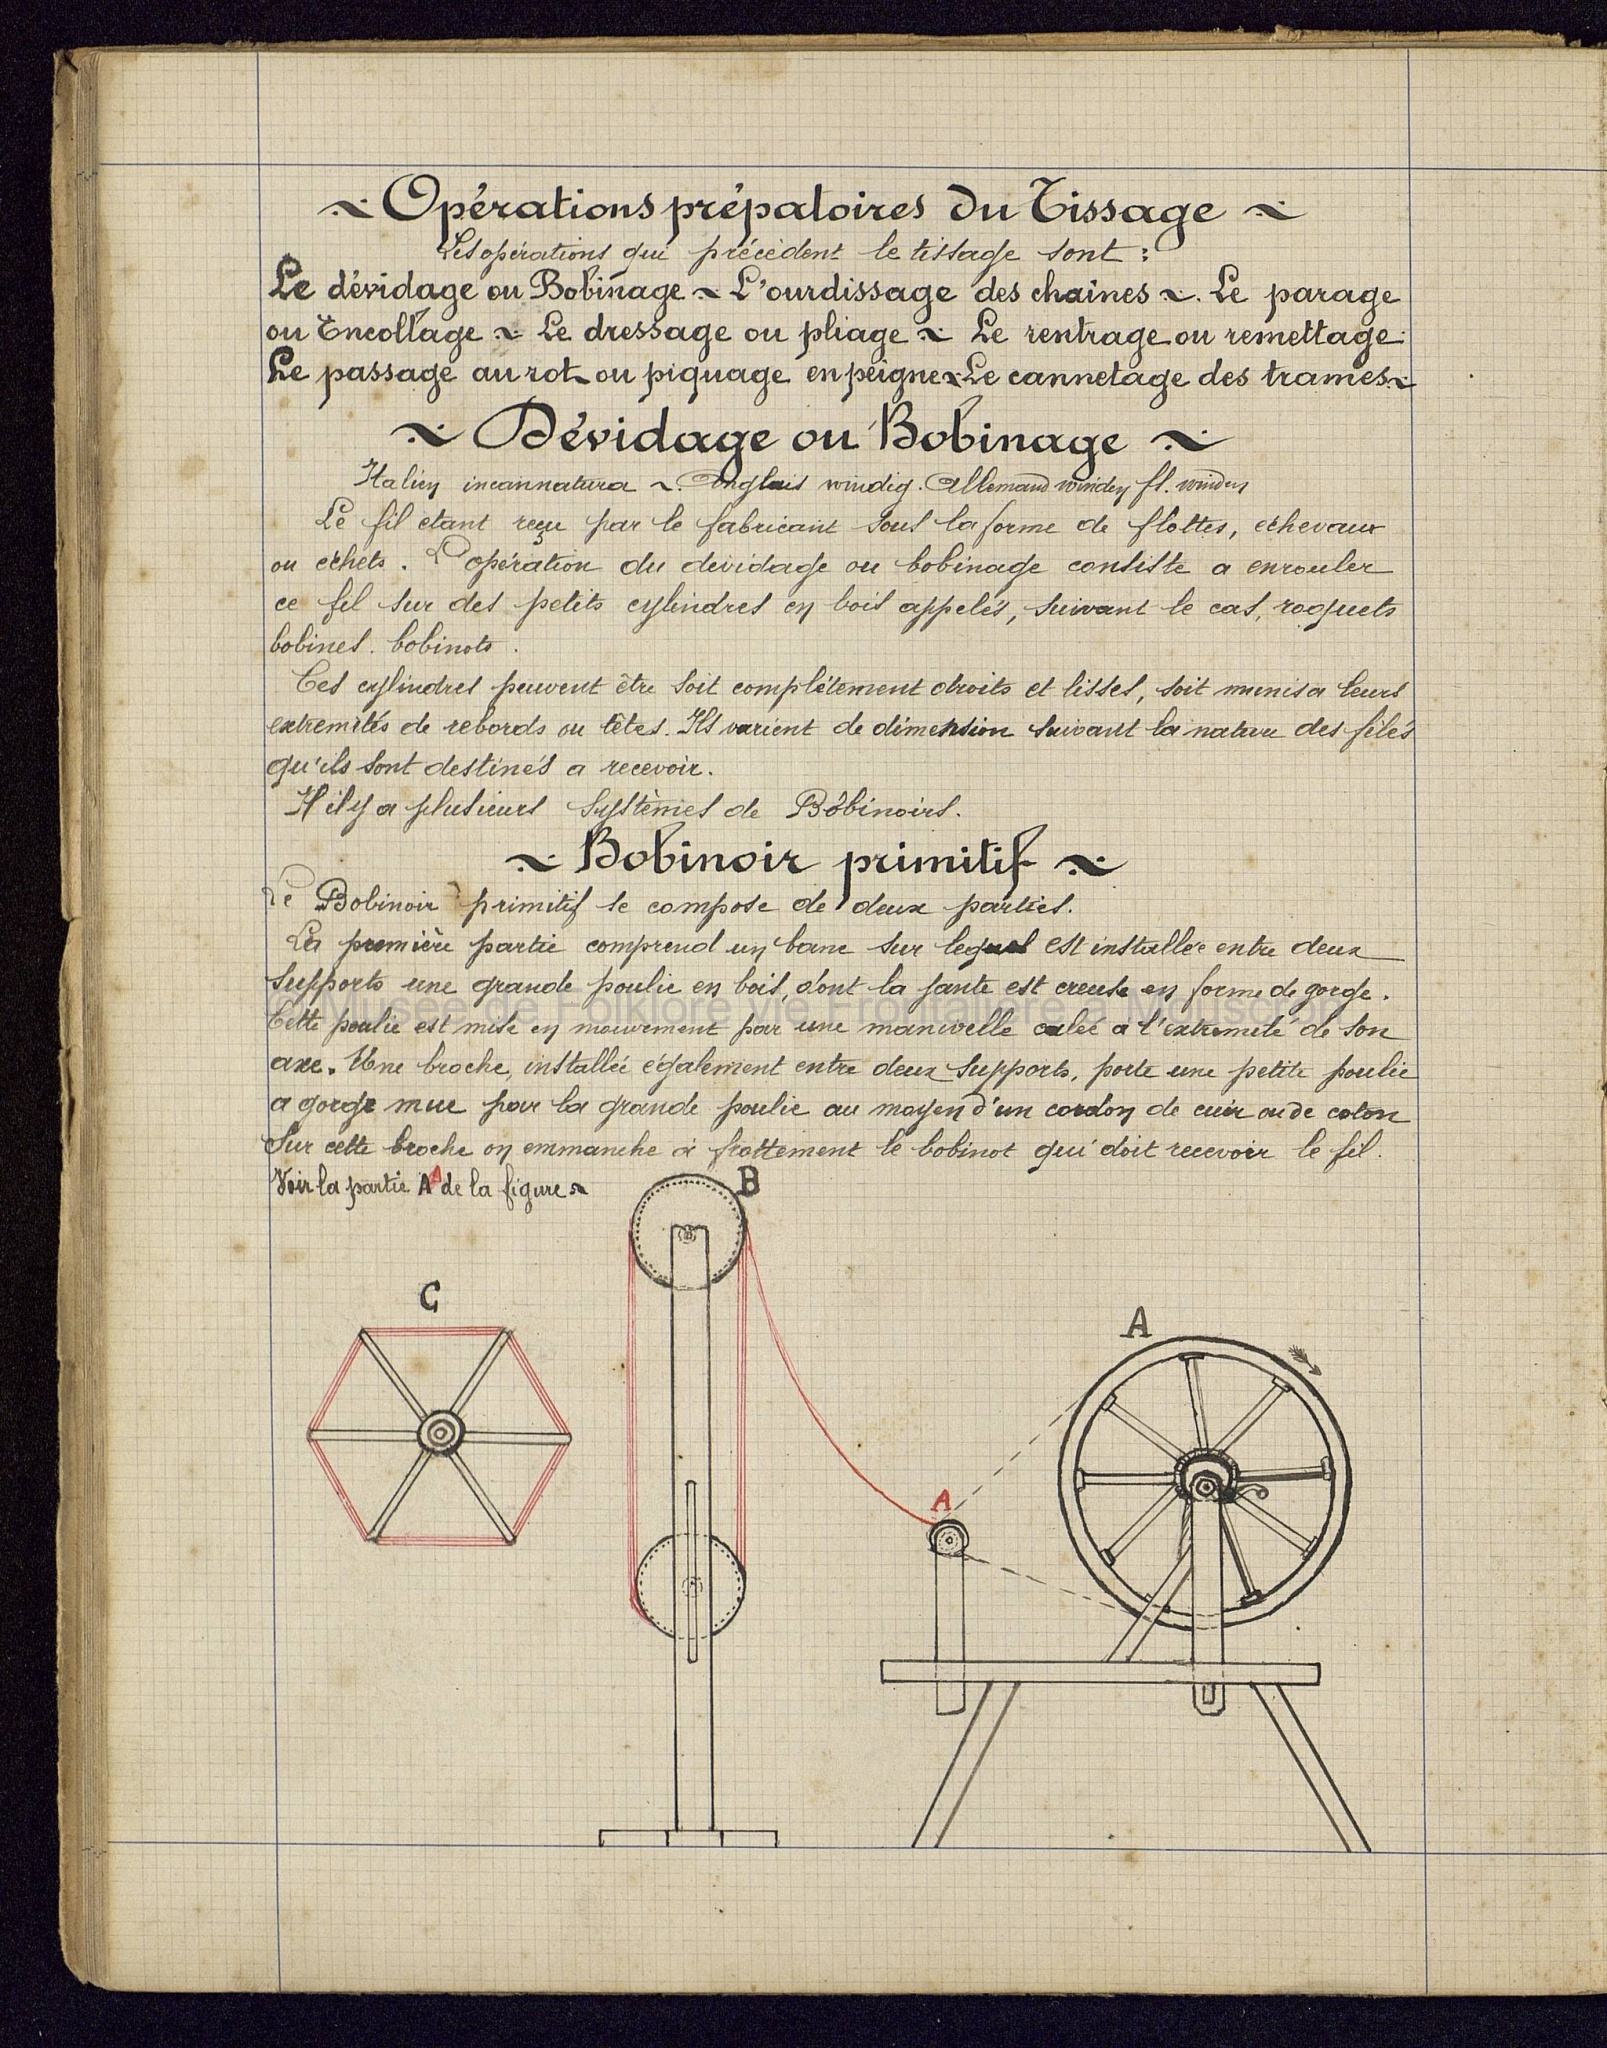 Opérations prépatoires du Tissage
Les opérations qui précèdent le tissage sont :
Le dévidage ou Bobinage ~ L'ourdissage des chaines ~. Le parage
ou Encollage ~ Le dressage ou pliage ~ Le rentrage ou remettage.
Le passage au rot ou piquage en peigne ~ Le cannetage des trames ~
~ Dévidage ou Bobinage ~
Italien incannatura ~. Anglais windig. Allemand winden fl. winden
Le fil étant reçu par le fabricant sous la forme de flottes, echevaux
ou échets. L'opération du dévidage ou bobinage consiste a enrouler
ce fil sur des petits cylindres en bois appelés, suivant le cas, roquets
bobines. bobinots.
Ces cylindres peuvent être soit complètement droits et lisses, soit munis a leurs
extremités de rebords ou têtes. Ils varient de dimension suivant la nature des filés
qu'ils sont destinés a recevoir.
Il il y a plusieurs Systèmes de Bobinoirs.
~ Bobinoir primitif ~
Le Bobinoir primitif se compose de deux parties.
La première partie comprend un banc sur lequel est installée entre deux
supports une grande poulie en bois, dont la jante est creuse en forme de gorge.
© Musée de Folklore vie Frontalière
Cette poulie est mise en mouvement par une manivelle calée a l'extremité de son
axe. Une broche, installée également entre deux supports, porte une petite poulie
a gorge mue par la grande poulie au moyen d'un cordon de cuir ou de coton
Sur cette broche on emmanche à frottement le bobinot qui doit recevoir le fil.
Voir la partie A A de la figure ~
B
C
A
A